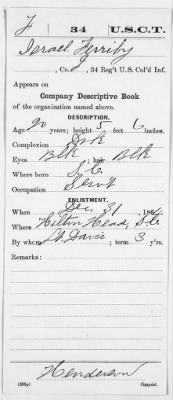 F 34 U.S.C.T.
Israel Ferriby
, Co. J, 34 Reg't U.S. Col'd Inf.
Appears on
Company Descriptive Book
of the organization named above.
DESCRIPTION.
Age 20 years; height 5 feet 6 inches.
Complexion Drk
Eyes Blk; hair Blk
Where born S.C.
Occupation Servt
ENLISTMENT.
When Dec. 31, 1864.
Where Hilton Head, S.C.
By whom Lt. Davis; term 3 y'rs.
Remarks:
Henderson
Copyist.